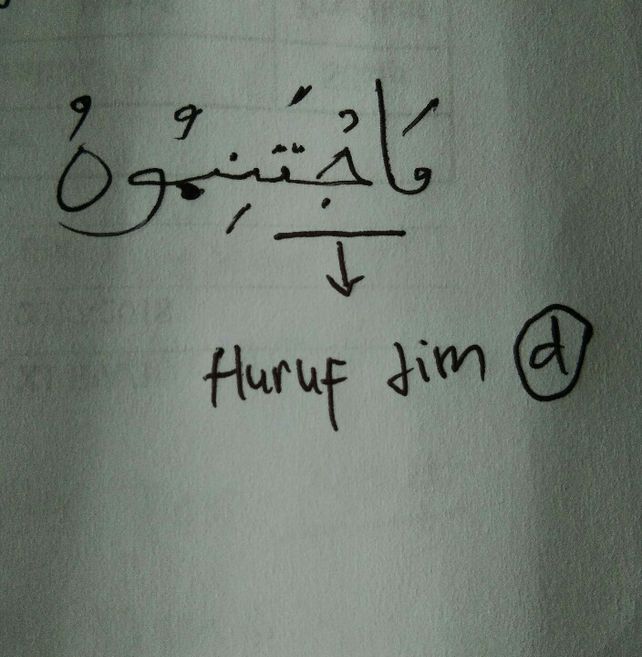 فَاجْتَنِبُوهُ
Huruf Jim d